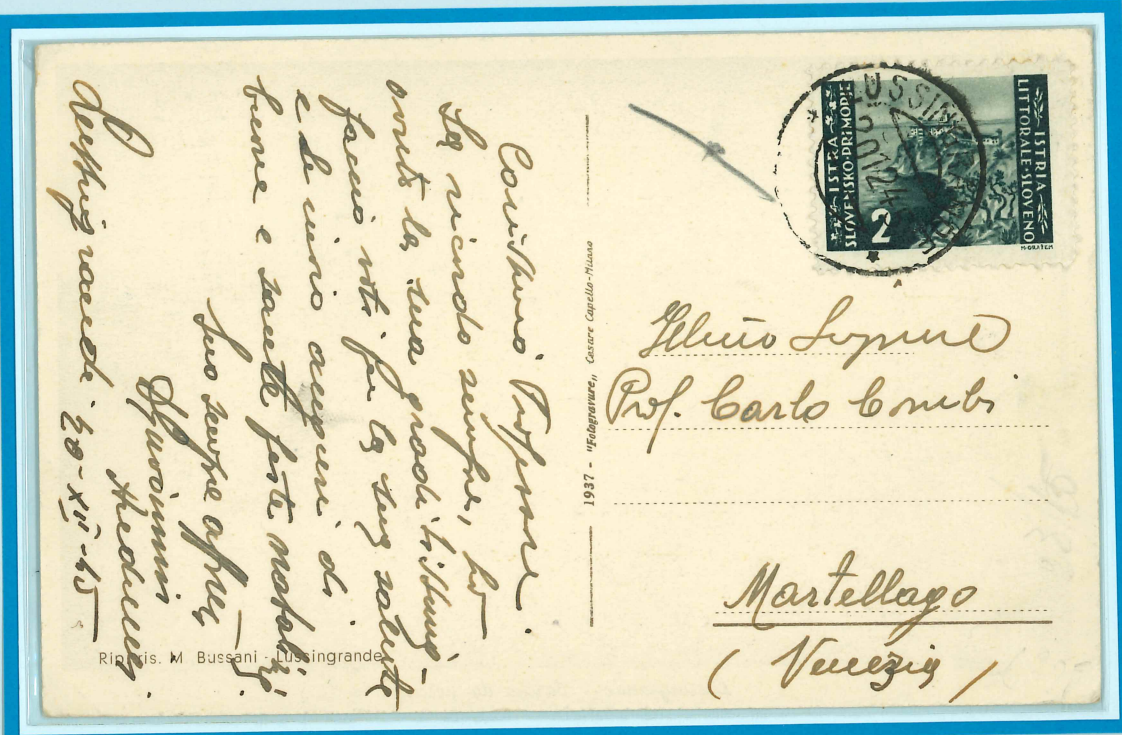 Carissimo Professore!
La ricordo sempre, ho
avuto la sua graditissima
faccio voti per la sua salute
e Le invio auguri di
bene e sante feste natalizie.
Suo sempre affmo
Lussingrande 20-XII-45
Ripr. ris. M. Bussani - Lussingrande
1937 - "Fotogravure" Cesare Capello - Milano
LUSSINGRANDE
ISTRA
SLOVENSKO PRIMORJE
2
ISTRIA
LITTORALE SLOVENO
Prof. Carlo Combi
Martellago
(Venezia)